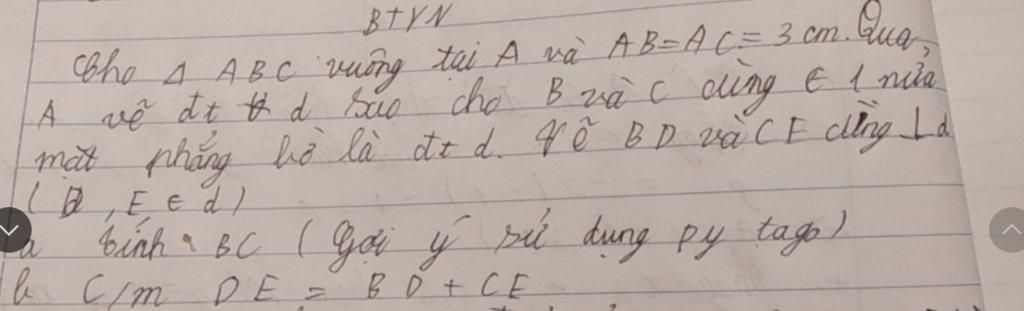 BTVN
Cho Δ ABC vuông tại A và AB = AC = 3 cm. Qua
A vẽ đt d sao cho B và C cùng ∈ 1 nửa
mặt phẳng bờ là đt d. Vẽ BD và CE cùng ⊥ d
(D, E ∈ d)
a tính BC (Gợi ý sử dụng py tago)
b C/m DE = BD + CE